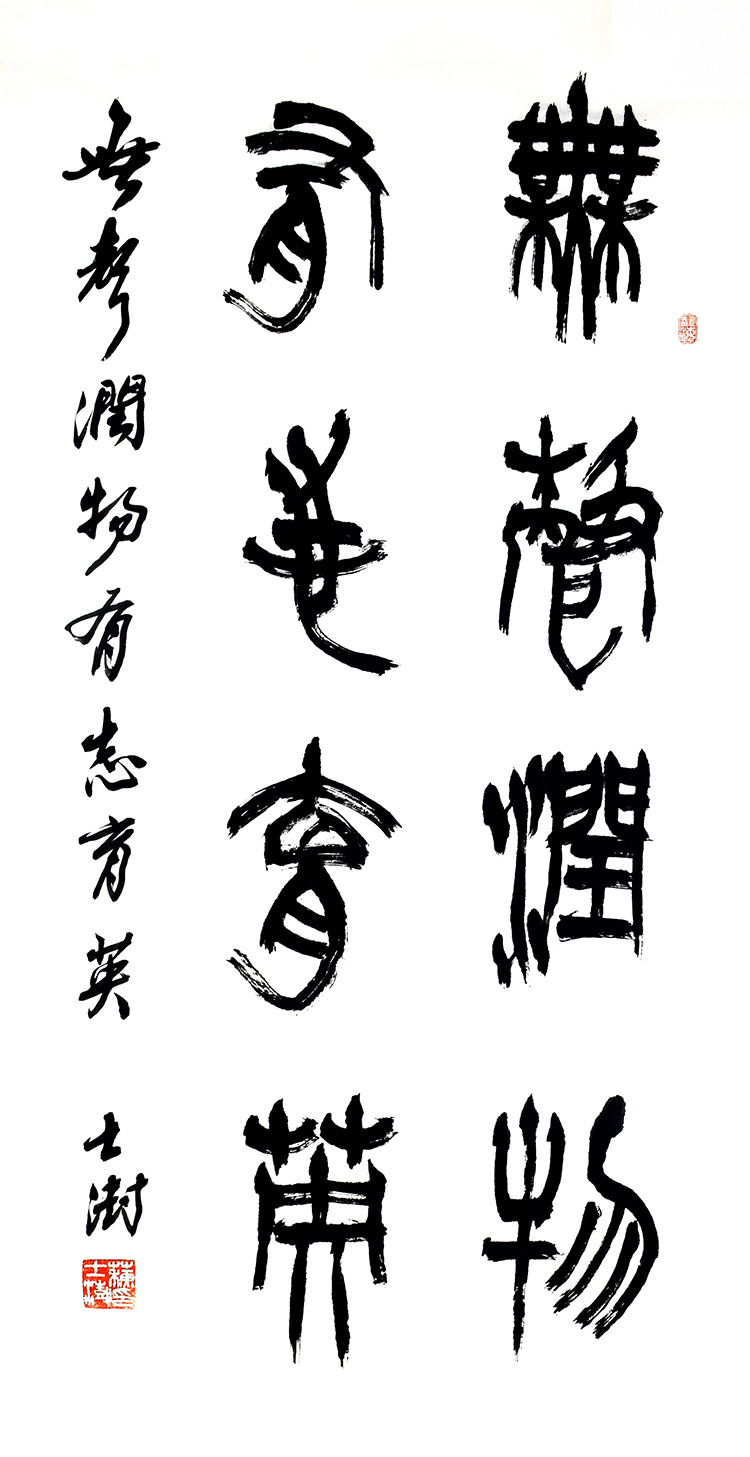 無聲潤物
有志育英
無聲潤物有志育英 士澍
蘇士澍印